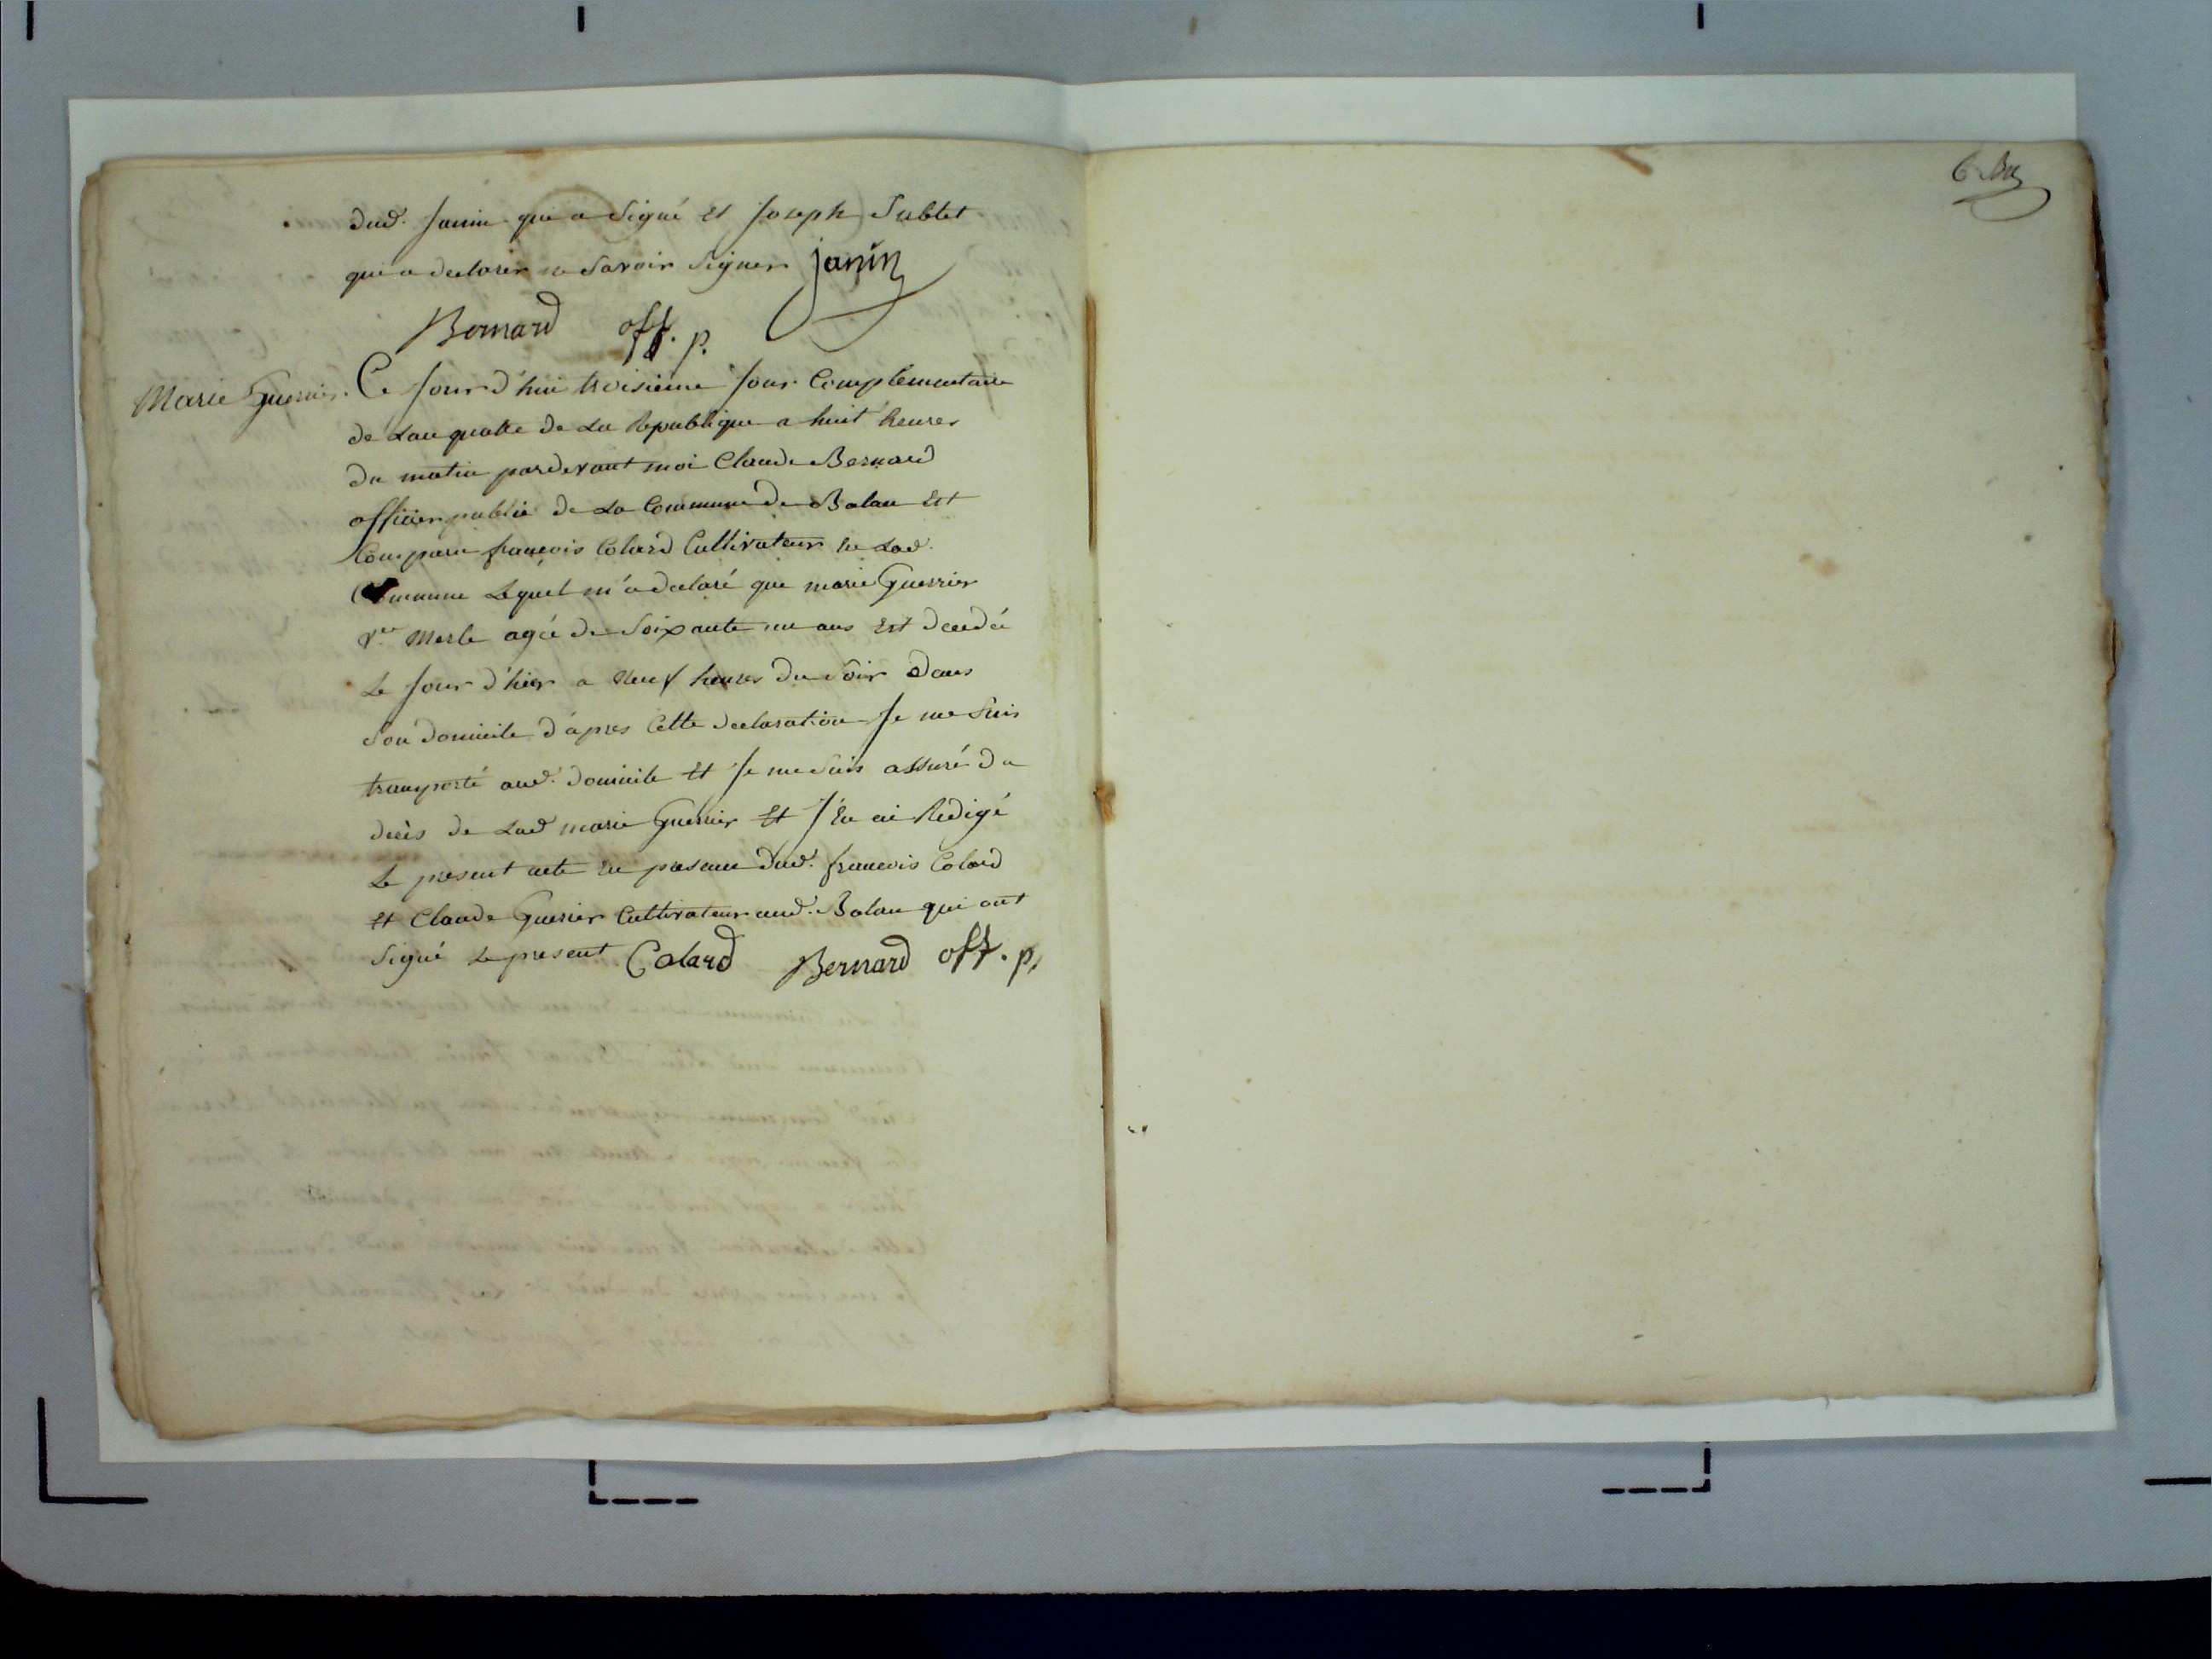 dud. Janin qui a Signé et Joseph Sublet
qui a declarer ne Savoir Signer Janin
Bernard off. p.
Marie Guerrier. Ce Jourd'hui troisieme Jour Complementaire
de Lan quatte de La Republique a huit heures
du matin pardevant moi Claude Bernard
officier public de La Commune de Balan Est
Comparu françois Colard Cultivateur en Lad.
Commune Lequel m'a declaré que marie Guerrier
Vve Merle agée de Soixante un ans Est decedée
Le Jour d'hier a neuf heures du Soir dans
Son domicile d'apres Cette declaration Je me Suis
transporté aud. domicile Et Je me Suis assuré du
decès de Lad marie Guerrier Et J'en ai Redigé
Le present acte en presence dud. francois Colard
Et Claude Guerier Cultivateur aud. Balan qui ont
Signé Le present Colard Bernard off. p.
6